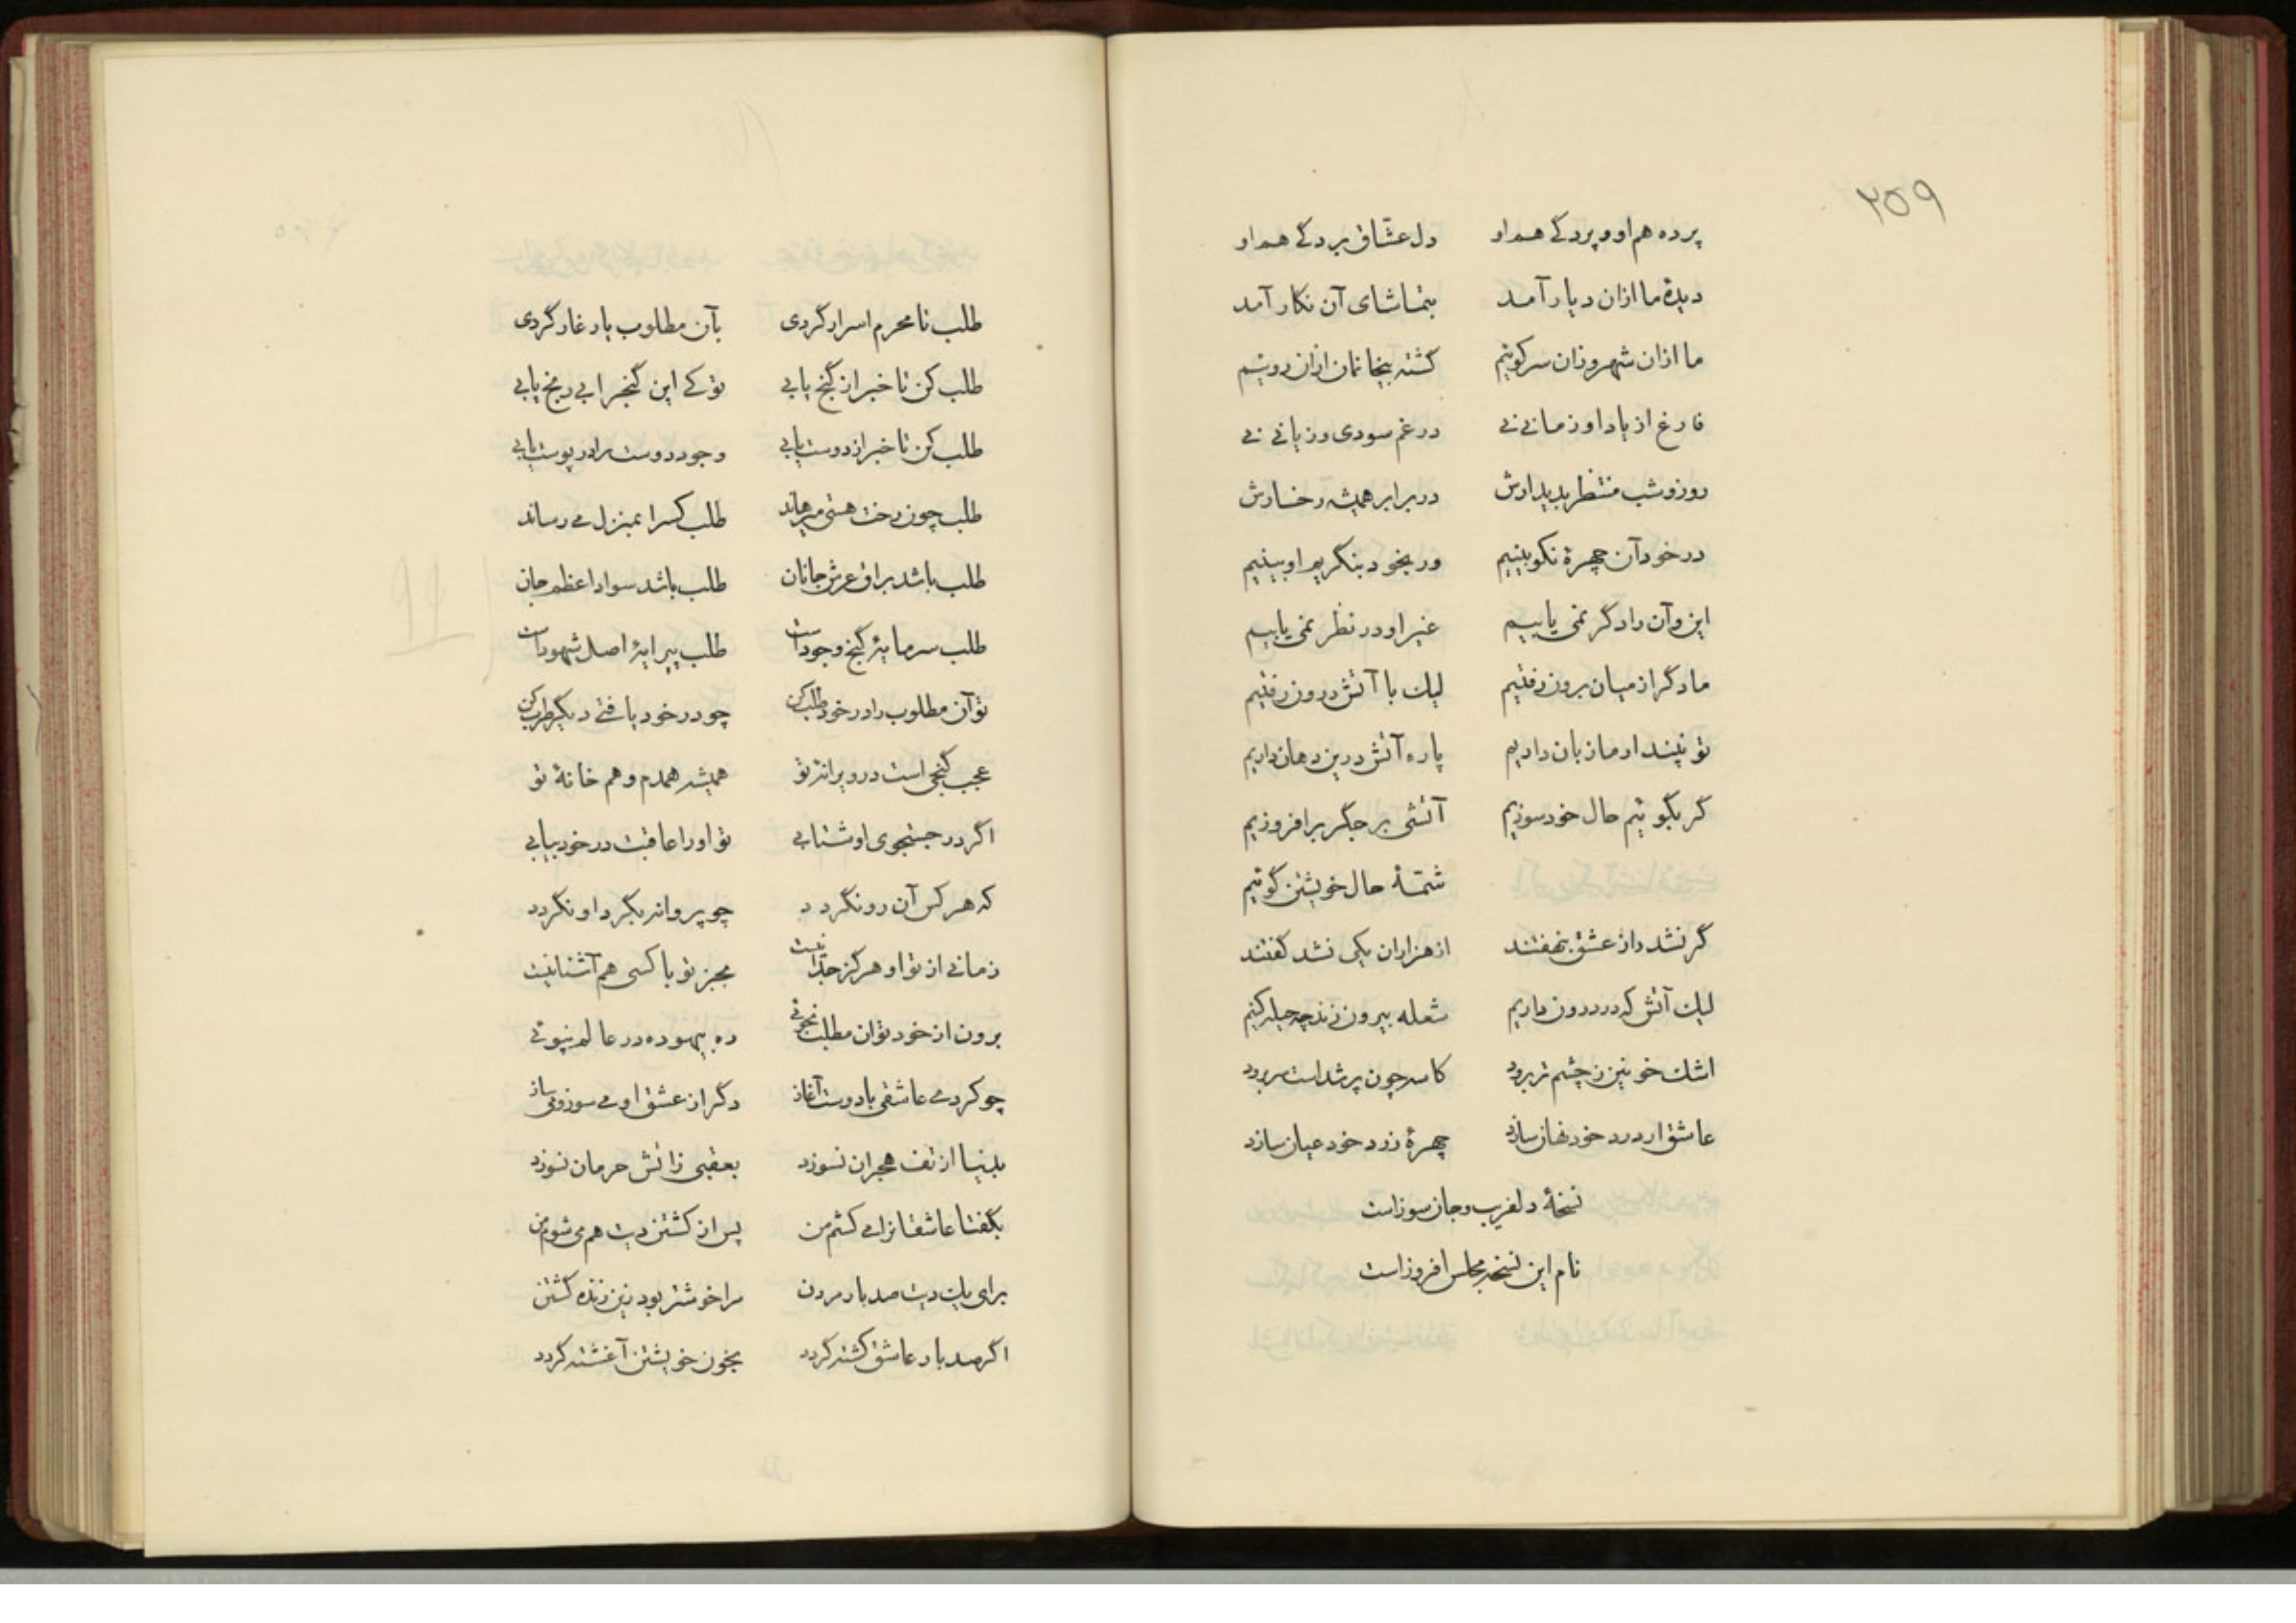 ۲۵۹
پرده هم او و پردگے هم او دل عشاق بردگے هم او
دیدهٔ ما ازان دیار آمد بتماشای آن نکار آمد
ما ازان شهر وزان سرکوئیم کشته بیخانمان ازان روئیم
فارغ از یاد او زمانے نے در غم سودی و زیانے نے
روز و شب منتظر بدیدارش در برابر همیشه رخسارش
در خود آن چهرهٔ نکو بینیم ور بخود بنکریم او بینیم
این و آن را دگر نمی یابیم غیر او در نظر نمی یابیم
ما دگر از میان برون رفتیم لیك با آتش درون رفتیم
تو نپندار ما زبان داریم پاره آتش درین دهان داریم
کر بگوئیم حال خود سوزیم آتشی بر جگر برافروزیم
شمّهٔ حال خویشتن گوئیم
گر نشد راز عشق بنهفتند از هزاران یکی نشد گفتند
لیك آتش که در درون داریم شعله بیرون زند چه حیله کنیم
اشك خونین ز چشم تر برود کاسه چون پر شد است سر برود
عاشق ار درد خود نهان سازد چهرهٔ زرد خود عیان سازد
نسخهٔ دلفریب و جان سوز است
نام این نسخه مجلس افروز است
طلب تا محرم اسرار گردی بآن مطلوب یار غار گردی
طلب کن تا خبر از گنج یابی تو کے این گنجرا بے رنج یابی
طلب کن تا خبر از دوست یابی وجود دوست را در پوست یابی
طلب چون رخت هستی میرهاند طلب کسرا بمنزل مے رساند
طلب باشد براق عرش جانان طلب باشد سواد اعظم جان
طلب سرمایهٔ گنج وجود است طلب پیرایهٔ اصل شهود است
تو آن مطلوب را در خود طلب کن چو در خود یافتے دیگر طرب کن
عجب گنجی است در ویرانه تو همیشه همدم و هم خانهٔ تو
اگر در جستجوی او شتابی تو او را عاقبت در خود بیابی
که هر کس آن رو نگردد چو پروانه بگرد او نگردد
زمانے از تو او هرگز جدا نیست بجز تو با کسی هم آشنا نیست
برون از خود تو ان مطلب نجوئی ره بیهوده در عالم نپوئی
چو کردے عاشقی با دوست آغاز دگر از عشق او مے سوز و مے ساز
بدنیا از تف هجران نسوزد بعقبی ز اتش حرمان نسوزد
بگفتا عاشقانرا مے کشم من پس از کشتن دیت هم می شوم من
برای یك دیت صد بار مردن مرا خوشتر بود زین زنده گشتن
اگر صد بار عاشق کشته گردد بخون خویشتن آغشته گردد